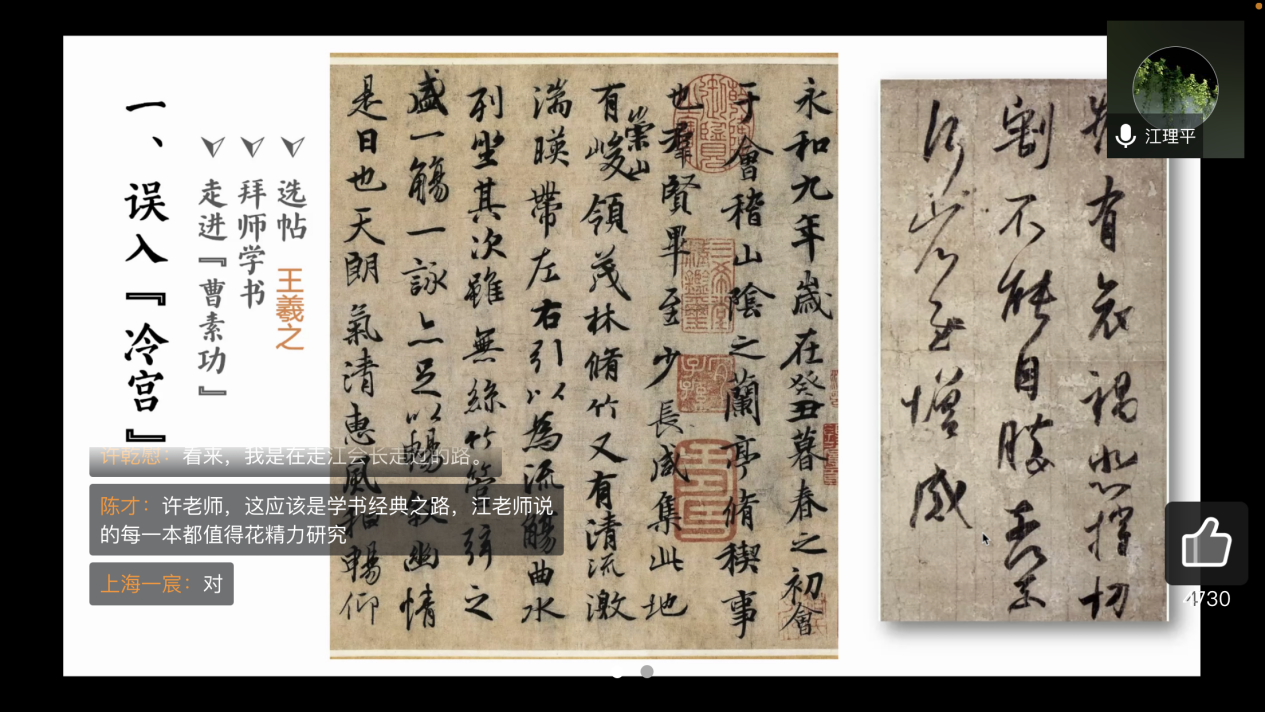 一、误入『冷宫』
选帖 王羲之
拜师学书
走进『曹素功』
永和九年歲在癸丑暮春之初會
于會稽山陰之蘭亭脩稧事
也羣賢畢至少長咸集此地
有崇山峻領茂林脩竹又有清流激
湍暎帶左右引以為流觴曲水
列坐其次雖無絲竹管弦之
盛一觴一詠亦足以暢敘幽情
是日也天朗氣清惠風和暢仰
有哀禍悲摧切
割不能自勝奈何奈
何省慰增感
江理平
许乾慰：看来，我是在走江会长走过的路。
陈才：许老师，这应该是学书经典之路，江老师说
的每一本都值得花精力研究
上海一宸：对
4730